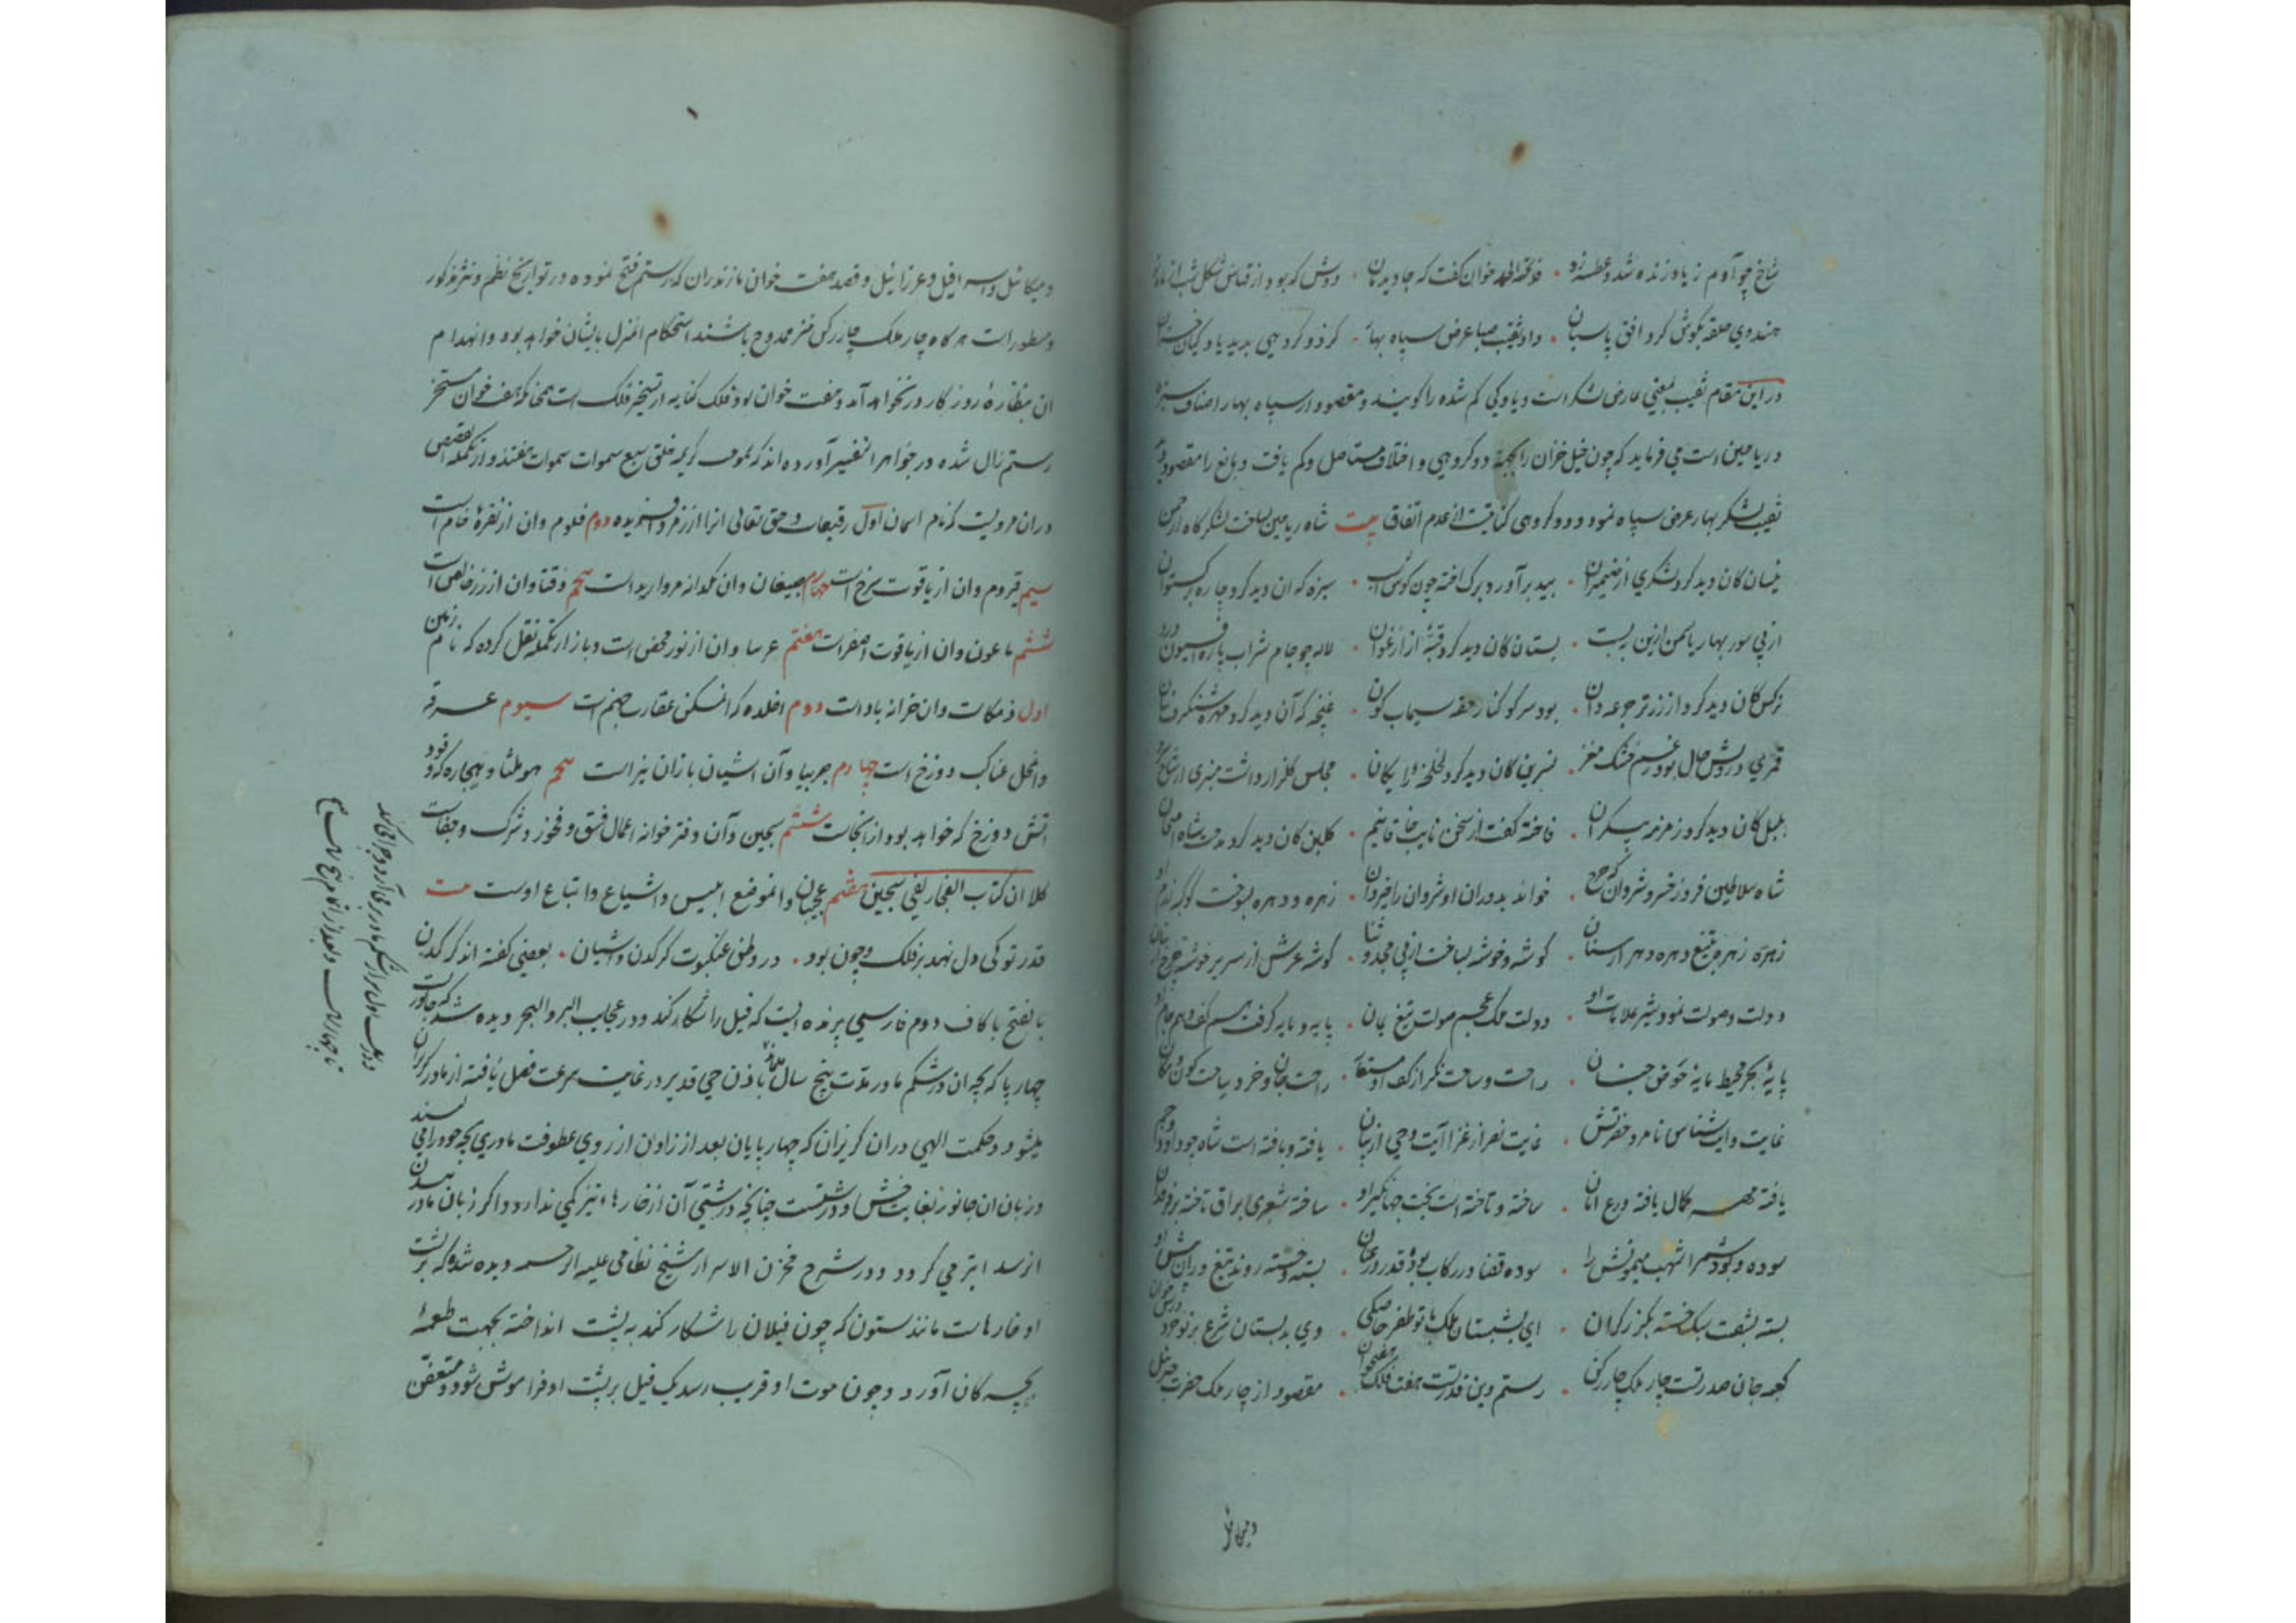 شاخ چو آدم ز باد زنده شد و عطسه زد • فاخته الحمد خوان گفت که جاوید مان • دوش که بود از قیاس شکل شب از ماه نو
هندوی حلقه بگوش کرد افق پاسبان • داد نقیب صبا عرض سپاه بهار • کز دو گروهی بدید یاوگیان خزان
در این مقام نقیب بمعنی عارض لشکر است و یاوگی کم شده را گویند و مقصود از سپاه بهار اصناف سبزه
و ریاحین است می فرماید که چون خیل خزان را بجهة دو گروهی و اختلاف مستاصل و کم یافت و مانع را مقصود
نقیب لشکر بهار عرض سپاه نمود و دو گروهی کنایتست از عدم اتفاق بیت شاه ریاحین بساخت لشکرگاه از چمن
نیسان کان دید کرد لشکری از ضیمران • بید برآورد برگ آخته چون گوش اسب • سبزه که آن دید کرد چاره برگستوان
از پی سور بهار یاسمن آذین ببست • بستان کان دید کرد قبه از ارغوان • لاله چو جام شراب پاره افیون درو
نرکس کان دید کرد از زر تر جرعه دان • بود سر کوکنار حقه سیماب گون • غنچه که آن دید کرد مهره شنگرف سان
قمری درویش حال بود ز غم خشک مغز • نسرین کان دید کرد لخلخه رایکان • مجلس گلزار داشت منبری از شاخ سرو
بلبل کان دید کرد زمزمه بیکران • فاخته گفت از سخن نایب خاقانیم • گلبن کان دید کرد مدحت شاه امتحان
شاه سلاطین فروز خسرو شروان که چرخ • خواند بدوران او شروان را خیروان • زهره و دهره بسوخت کوکبه رزم او
زهره زهره بتیغ دهره دهر از سنان • گوشه و خوشه بساخت از پی مجد و ثنا • گوشه عرش از سریر خوشه چرخ از بنان
دولت و صولت نمود شیر علامات او • دولت ملک عجم صولت تیغ یمان • پایه و مایه گرفت هم کف و هم جام او
پایهٔ بحر محیط مایهٔ حوض جنان • راحت و ساحت نگر از کف او مستعار • راحت جان و خرد ساحت کون و مکان
غایت و آیت شناس نامزد حضرتش • غایت نصر از غزا آیت وحی از بیان • یافته و بافته است شاه چو داود و جم
یافته مهر کمال بافته درع امان • ساخته و تاخته است بخت جهانگیر او • ساخته شعری براق تاخته بر فرقدان
سوده و بوده شمر اشهب میمونش را • سوده قضا در رکاب بوده قدر در عنان • بسته و خسته روند تیغ وران پیش او
بسته بشست سبک خسته بگرز گران • ای بشبستان ملک با تو ظفر خاصگی • وی بدبستان شرع بر تو خرد درس خوان
کعبه جان صدر تست چار ملک چار رکن • رستم دین قدر تست هفت فلک هفت خوان • مقصود از چار ملک حضرت جبرئیل
و میکائیل
و میکائیل و اسرافیل و عزرائیل و قصه هفت خوان مازندران که رستم فتح نموده در تواریخ نظم و نثر مذکور
و مسطور است هر گاه چار ملک چار رکن منزل ممدوح باشند استحکام آن منزل بایشان خواهد بود و انهدام
آن بنظارهٔ روزگار در نخواهد آمد و هفت خوان بود فلک کنایه از تسخیر فلک است همچنانکه هفت خوان مسخر
رستم زال شده در جواهر التفسیر آورده اند که بموجب کریمه خلق سبع سموات سموات هفتند و از تکملة القصص
در آن مرویست که نام آسمان اول رقیعا است و حق تعالی آنرا از زمرد آفریده دوم قلوم و آن از نقرهٔ خام است
سیم قیروم و آن از یاقوت سرخ است چهارم و آن یکدانه مروارید است پنجم دقنا و آن از زر خالص است
ششم ماعون و آن از یاقوت اصفر است هفتم عرسا و آن از نور محض است و باز از تکمله نقل کرده که نام زمین
اول ذمکا است و آن خزانه باد است دوم اخلده که آن مسکن عقارب جهنم است سیوم عرقه
و آن محل عناکب دوزخ است چهارم جربیا و آن آشیان ماران نیز است پنجم و حجاره که وقود
آتش دوزخ که خواهد بود از آنجاست ششم سجین و آن دفترخوانه اعمال فسق و فجور و شرک و
کلا ان کتاب الفجار لفی سجین هفتم عجیبا و آن موضع ابلیس و اشیاع و اتباع اوست بیت
قدر تو کی دل نهد بر فلک و چون بود • در وطن عنکبوت کرگدن و آشیان • بعضی گفته اند کرگدن
بالفتح با کاف دوم فارسی پرنده ایست که فیل را شکار کند و در عجایب البر و البحر دیده شد که جانوریست
چهار پا که بچه آن در شکم مادر مدت پنج سال باذن حی قدیر در غایت سرعت فصل یافته از مادر گریزان
میشود و حکمت الهی در آن گریز آن که چهار پایان بعد از زادن از روی عطوفت مادری بچه خود را می لیسند
و زبان آن جانور بغایت خشن و درشتست چنانچه درشتی آن از خارها نیز کمی ندارد و اگر زبان مادر ببدن
او رسد ابتر می گردد و در شرح مخزن الاسرار شیخ نظامی علیه الرحمه دیده شد که بر پشت
او خارهاست مانند ستون که چون فیلان را شکار کند به پشت انداخته بجهت طعمهٔ
بچه گان آورد و چون موت او قریب رسد یک فیل بر پشت او فراموش شود و متعفن